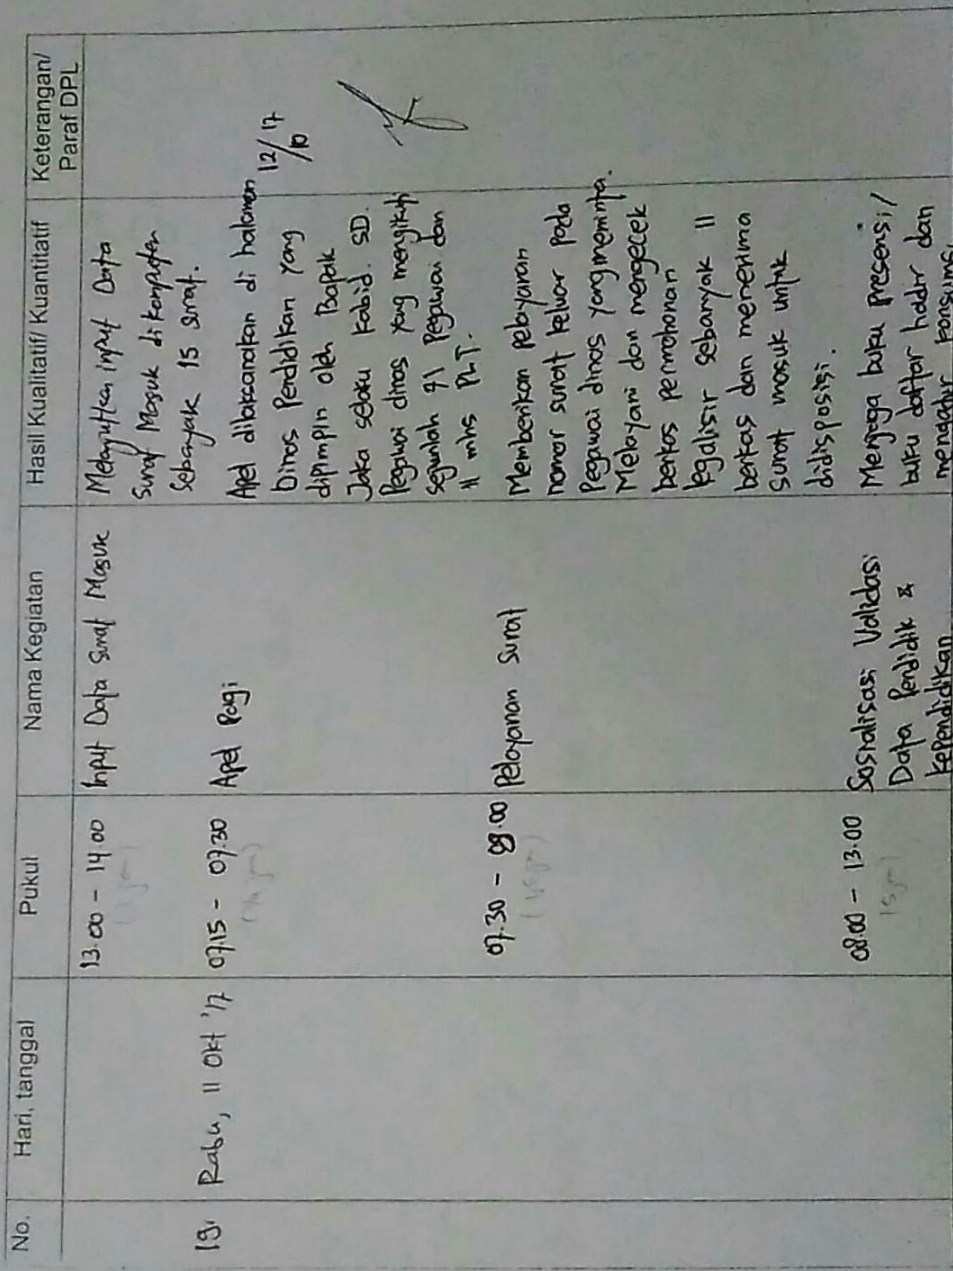 No. Hari, tanggal Pukul Nama Kegiatan Hasil Kualitatif/ Kuantitatif Keterangan/
Paraf DPL
13.00 - 14.00 Input Data Surat Masuk Melanjutkan input Data
Surat Masuk di komputer
Sebanyak 15 surat.
19. Rabu, 11 Okt '17 07.15 - 07.30 Apel Pagi Apel dilaksanakan di halaman
Dinas Pendidikan yang 12/10 17
dipimpin oleh Bapak
Jaka selaku Kabid. SD.
Pegawai dinas yang mengikuti
sejumlah 91 Pegawai dan
11 mhs PLT.
07.30 - 09.00 Pelayanan Surat Memberikan pelayanan
nomor surat keluar pada
Pegawai dinas yang meminta.
Melayani dan mengecek
berkas permohonan
legalisir sebanyak 11
berkas dan menerima
surat masuk untuk
didisposisi.
08.00 - 13.00 Sosialisasi Validasi Menjaga buku presensi/
(5 jam) Data Pendidik & buku daftar hadir dan
kependidikan mengatur konsumsi